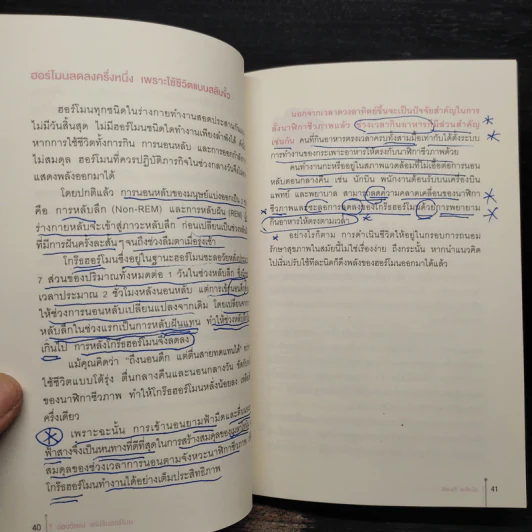 ฮอร์โมนลดลงครึ่งหนึ่ง เพราะใช้ชีวิตแบบสลับขั้ว
ฮอร์โมนทุกชนิดในร่างกายทำงานสอดประสานกัน
ไม่มีวันสิ้นสุด ไม่มีฮอร์โมนชนิดใดทำงานเพียงลำพังได้
หากการใช้ชีวิตทั้งการกิน การนอนหลับ และการออกกำลัง
ไม่สมดุล ฮอร์โมนที่ควรปฏิบัติภารกิจในช่วงกลางวัน
แสดงพลังออกมาได้
โดยปกติแล้ว การนอนหลับของมนุษย์แบ่งออกเป็น 2
คือ การหลับลึก (Non-REM) และการหลับฝัน (REM)
ร่างกายหลับจะเข้าสู่ภาวะหลับลึก ก่อนเปลี่ยนเป็นช่วงหลับ
ที่มีการฝันครั้งละสั้นๆ จนถึงช่วงลืมตาเมื่อรุ่งเช้า
โกร๊ธฮอร์โมนซึ่งอยู่ในฐานะฮอร์โมนชะลอวัยหลั่ง
7 ส่วนของปริมาณทั้งหมดต่อ 1 วันในช่วงหลับลึก
เวลาประมาณ 2 ชั่วโมงหลังนอนหลับ แต่การเข้านอน
ให้ช่วงการนอนหลับเปลี่ยนแปลงจากเดิม โดยเปลี่ยนจาก
หลับลึกในช่วงแรกเป็นการหลับฝันแทน ทำให้ช่วงหลับลึก
เกินไป การหลั่งโกร๊ธฮอร์โมนจึงลดลง
แม้คุณคิดว่า "ถึงนอนดึก แต่ตื่นสายทดแทนได้"
ใช้ชีวิตแบบโต้รุ่ง ตื่นกลางคืนและนอนกลางวัน
ของนาฬิกาชีวภาพ ทำให้โกร๊ธฮอร์โมนหลั่งน้อยลง
ครึ่งเดียว
เพราะฉะนั้น การเข้านอนยามฟ้ามืดและตื่นนอน
ฟ้าสางจึงเป็นหนทางที่ดีที่สุดในการสร้างสมดุลของ
สมดุลของช่วงเวลาการนอนตามจังหวะนาฬิกาชีวภาพ
โกร๊ธฮอร์โมนทำงานได้อย่างเต็มประสิทธิภาพ
40
นอกจากเวลาดวงอาทิตย์ขึ้นจะเป็นปัจจัยสำคัญในการ
ตั้งนาฬิกาชีวภาพแล้ว ช่วงเวลากินอาหารก็มีส่วนสำคัญ
เช่นกัน คนที่กินอาหารตรงเวลาครบทั้งสามมื้อเท่ากับได้ตั้งระบบ
การทำงานของกระเพาะอาหารให้ตรงกับนาฬิกาชีวภาพด้วย
คนทำงานกะหรืออยู่ในสภาพแวดล้อมที่ไม่เอื้อต่อการนอน
หลับตอนกลางคืน เช่น นักบิน พนักงานต้อนรับบนเครื่องบิน
แพทย์ และพยาบาล สามารถลดความคลาดเคลื่อนของนาฬิกา
ชีวภาพและชะลอการลดลงของโกร๊ธฮอร์โมนด้วยการพยายาม
กินอาหารให้ตรงตามเวลา
อย่างไรก็ตาม การดำเนินชีวิตให้อยู่ในกรอบการถนอม
รักษาสุขภาพในสมัยนี้ไม่ใช่เรื่องง่าย ถึงกระนั้น หากนำแนวคิด
ไปเริ่มปรับใช้ทีละนิดก็ดึงพลังของฮอร์โมนออกมาได้แล้ว
41